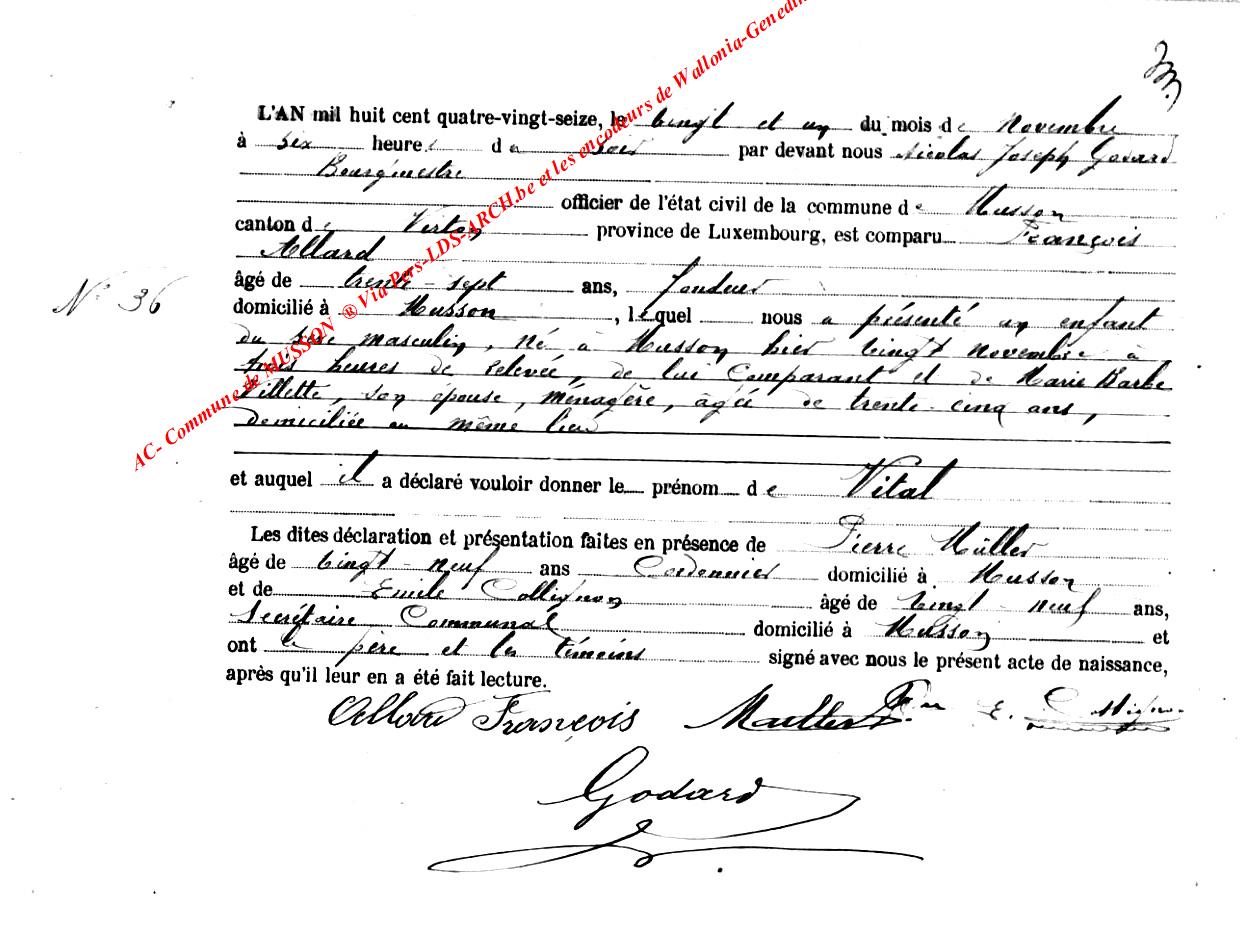 33.
AC- Commune de MUSSON ® Via Pers-LDS-ARCH.be et les encodeurs de Wallonia-Genedin
L'AN mil huit cent quatre-vingt-seize, le vingt et un du mois de Novembre
à six heures du soir par devant nous Nicolas Joseph Godard
Bourgmestre
officier de l'état civil de la commune de Musson
canton de Virton province de Luxembourg, est comparu François
Allard
âgé de trente-sept ans, fondeur
N° 36
domicilié à Musson, lequel nous a présenté un enfant
du sexe masculin, né à Musson hier vingt novembre à
trois heures de relevée, de lui Comparant et de Marie Barbe
Villette, son épouse, ménagère, âgée de trente-cinq ans,
domiciliée au même lieu
et auquel il a déclaré vouloir donner le prénom de Vital
Les dites déclaration et présentation faites en présence de Pierre Müller
âgé de vingt-neuf ans Cordonnier domicilié à Musson
et de Emile Collignon âgé de vingt-neuf ans,
Secrétaire Communal domicilié à Musson et
ont le père et les témoins signé avec nous le présent acte de naissance,
après qu'il leur en a été fait lecture.
Allard François Muller E. Collignon
Godard